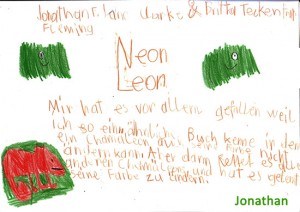 Jonathan F. Jane Clarke & Britta Teckentrup
Fleming
Neon
Leon
Mir hat es vor allem gefallen weil
ich so ein ähnliches Buch kenne in dem
ein Chamäleon auch seine Farbe nicht
ändern kann Aber dann Rettet es die
anderen Chamäleons und hat es gelernt
seine Farbe zu ändern.
Jonathan